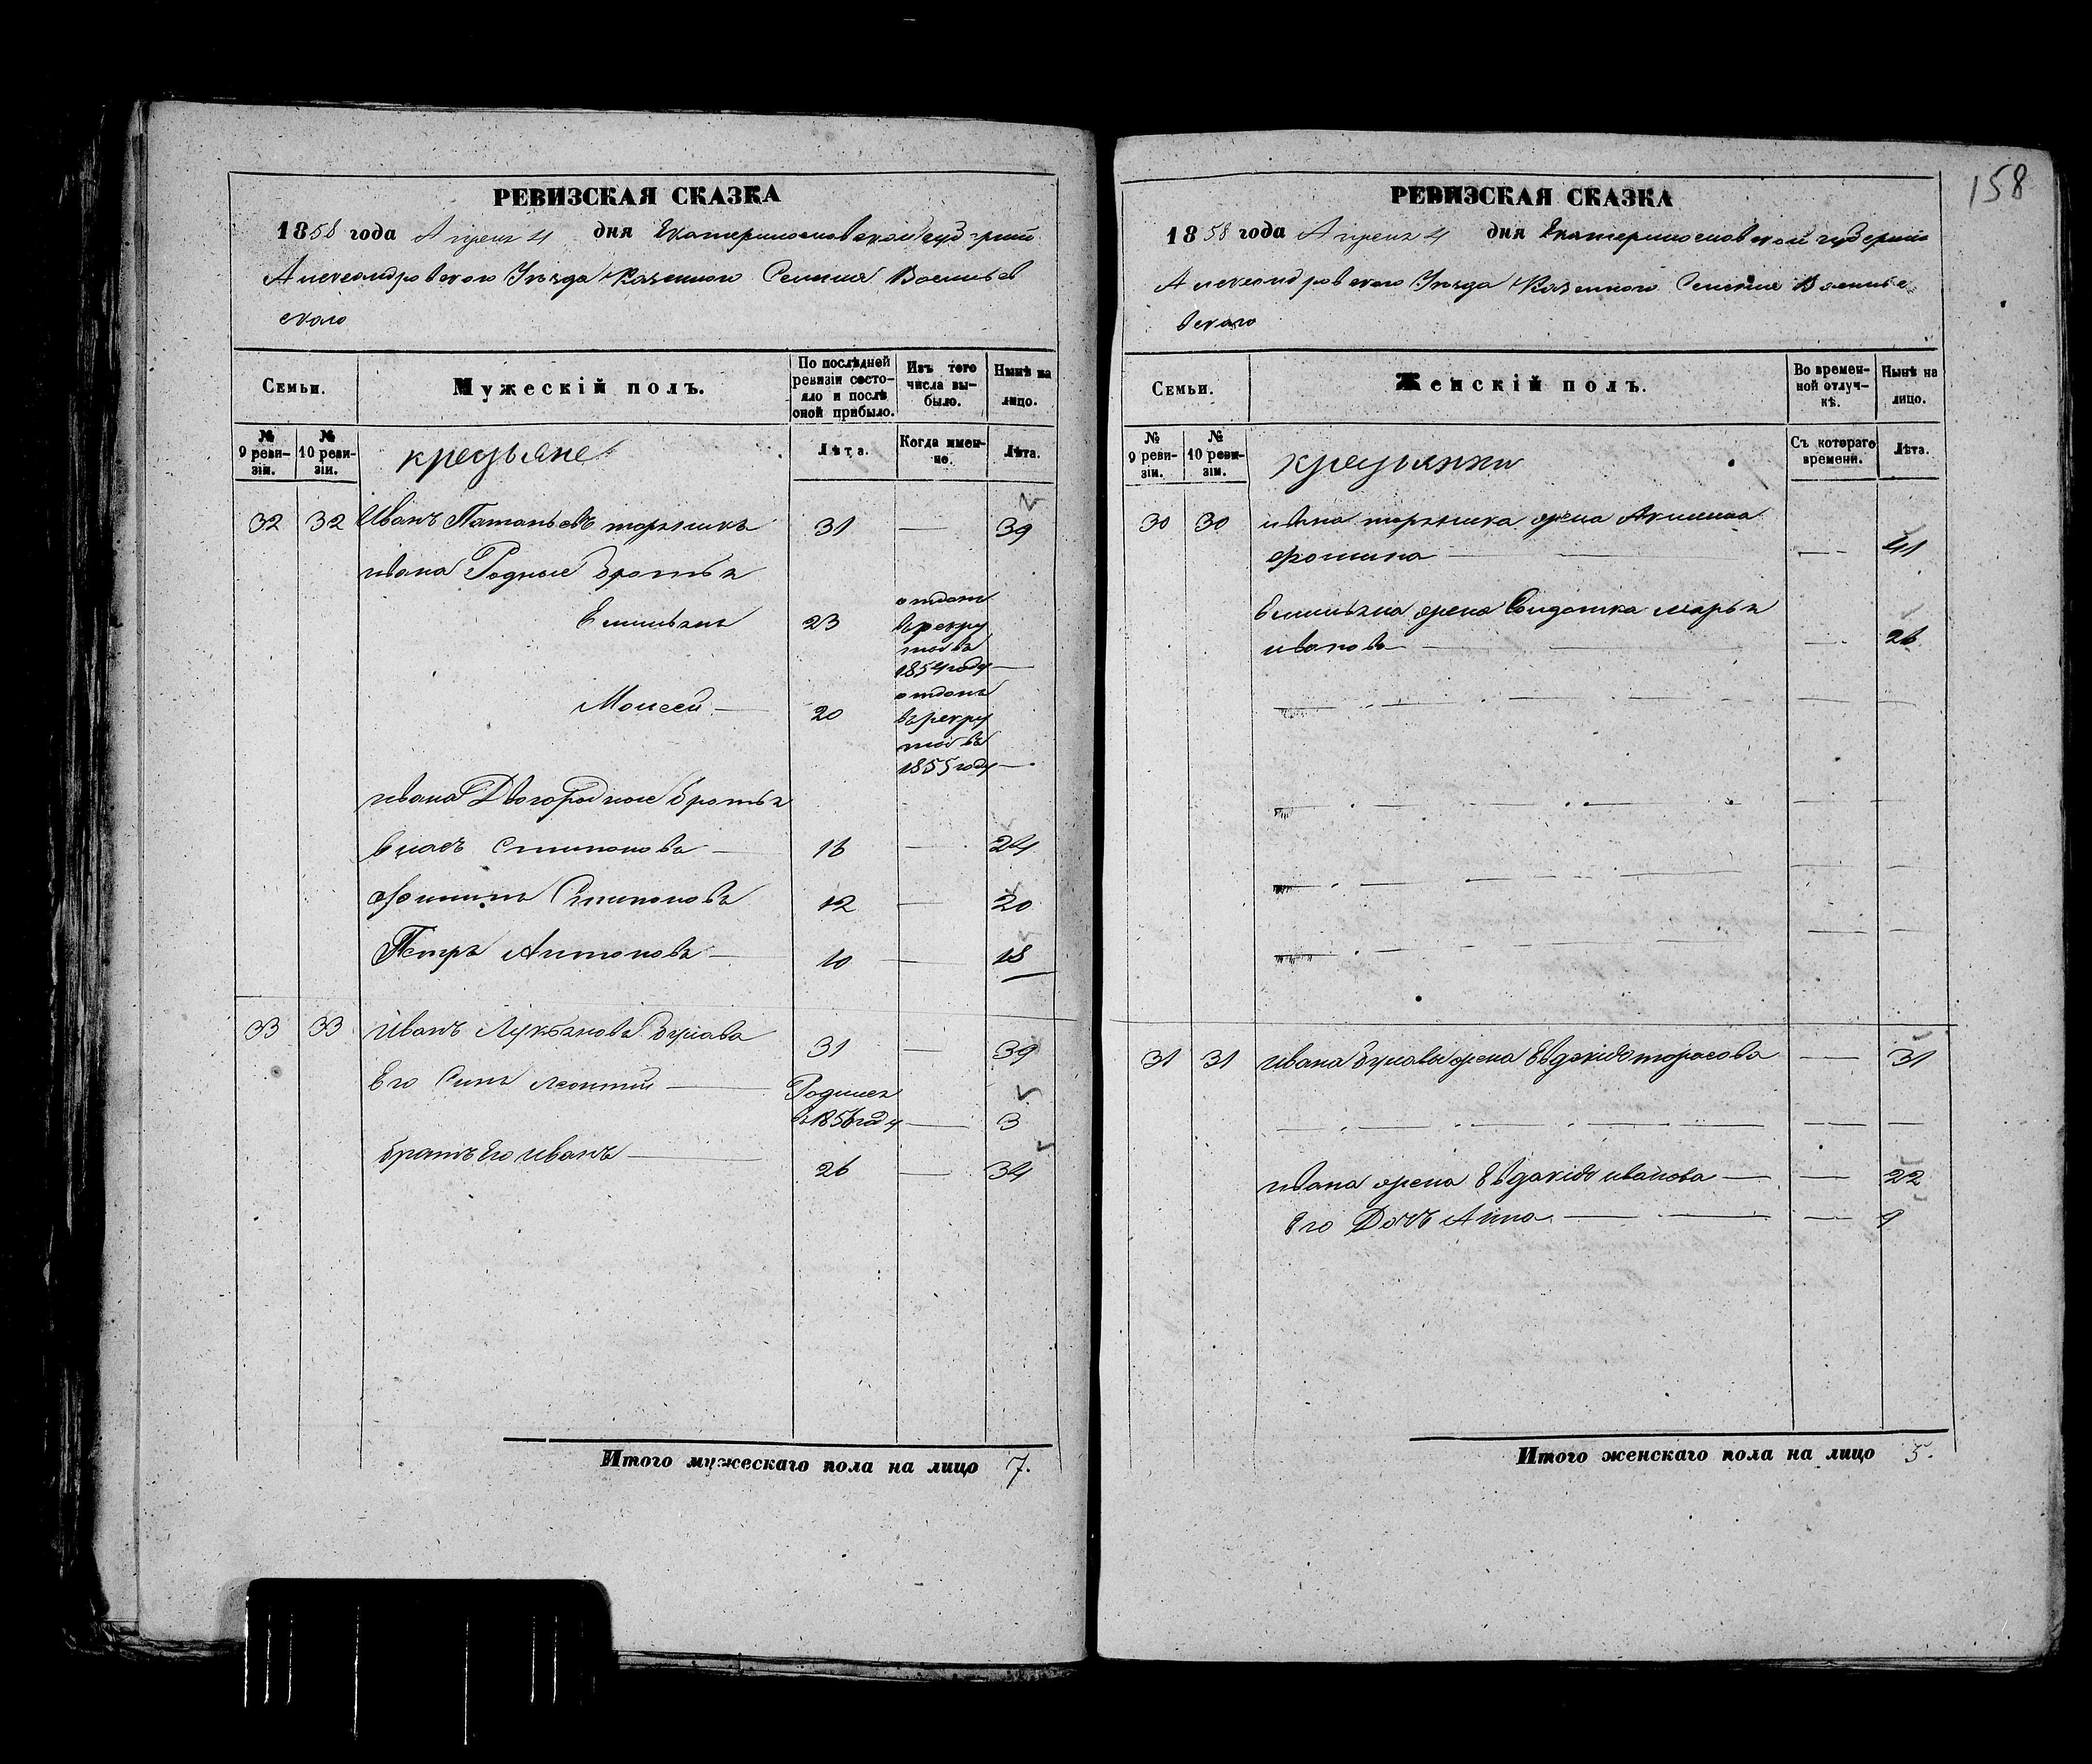 РЕВИЗСКАЯ СКАЗКА
1858 года Апреля 4 дня Екатеринославской губерний
Александровского Уезда Казенного Селения Василъев
ского
Семьи.
Мужескій полъ.
По послѣдней ревизіи состояло и послѣ оной прибыло.
Изъ того числа выбыло.
Нынѣ на лицо.
№ 9 ревизіи.
№ 10 ревизіи.
крестьяне
Лѣта.
Когда именно.
Лѣта.
32 32 Иванъ 31 — 39
ивана Родные братья
Емильянъ 23 отдан
въ рекру
ты въ
1854 году —
Моисей — 20 отданъ
въ рекру
ты въ
1855 году —
ивана Двоюродные братья
Власъ — 16 — 24
12 — 20
Петръ Антоновъ — 10 — 18
33 33 Иванъ Лукьяновъ Булава 31 — 39
Его Сынъ Леонтий — Родился
въ 1856 году — 3
братъ Его Иванъ — 26 — 34
Итого мужескаго пола на лицо 7.
158
РЕВИЗСКАЯ СКАЗКА
1858 года Апреля 4 дня Екатеринославской губерний
Александровского Уезда Казенного Селения Василье
вского
Семьи.
Женскій полъ.
Во временной отлучкѣ.
Нынѣ на лицо.
№ 9 ревизіи.
№ 10 ревизіи.
крестьянки
Съ котораго времени.
Лѣта.
30 30 ивана жена
фомина — — 41
Емильяна жена Солдатка марья
иванова — — 26
31 31 Ивана Булавы жена Евдокия тарасова — 31
ивана жена Евдокия иванова — — 22
Его Дочь Анна — — 1
Итого женскаго пола на лицо 5.